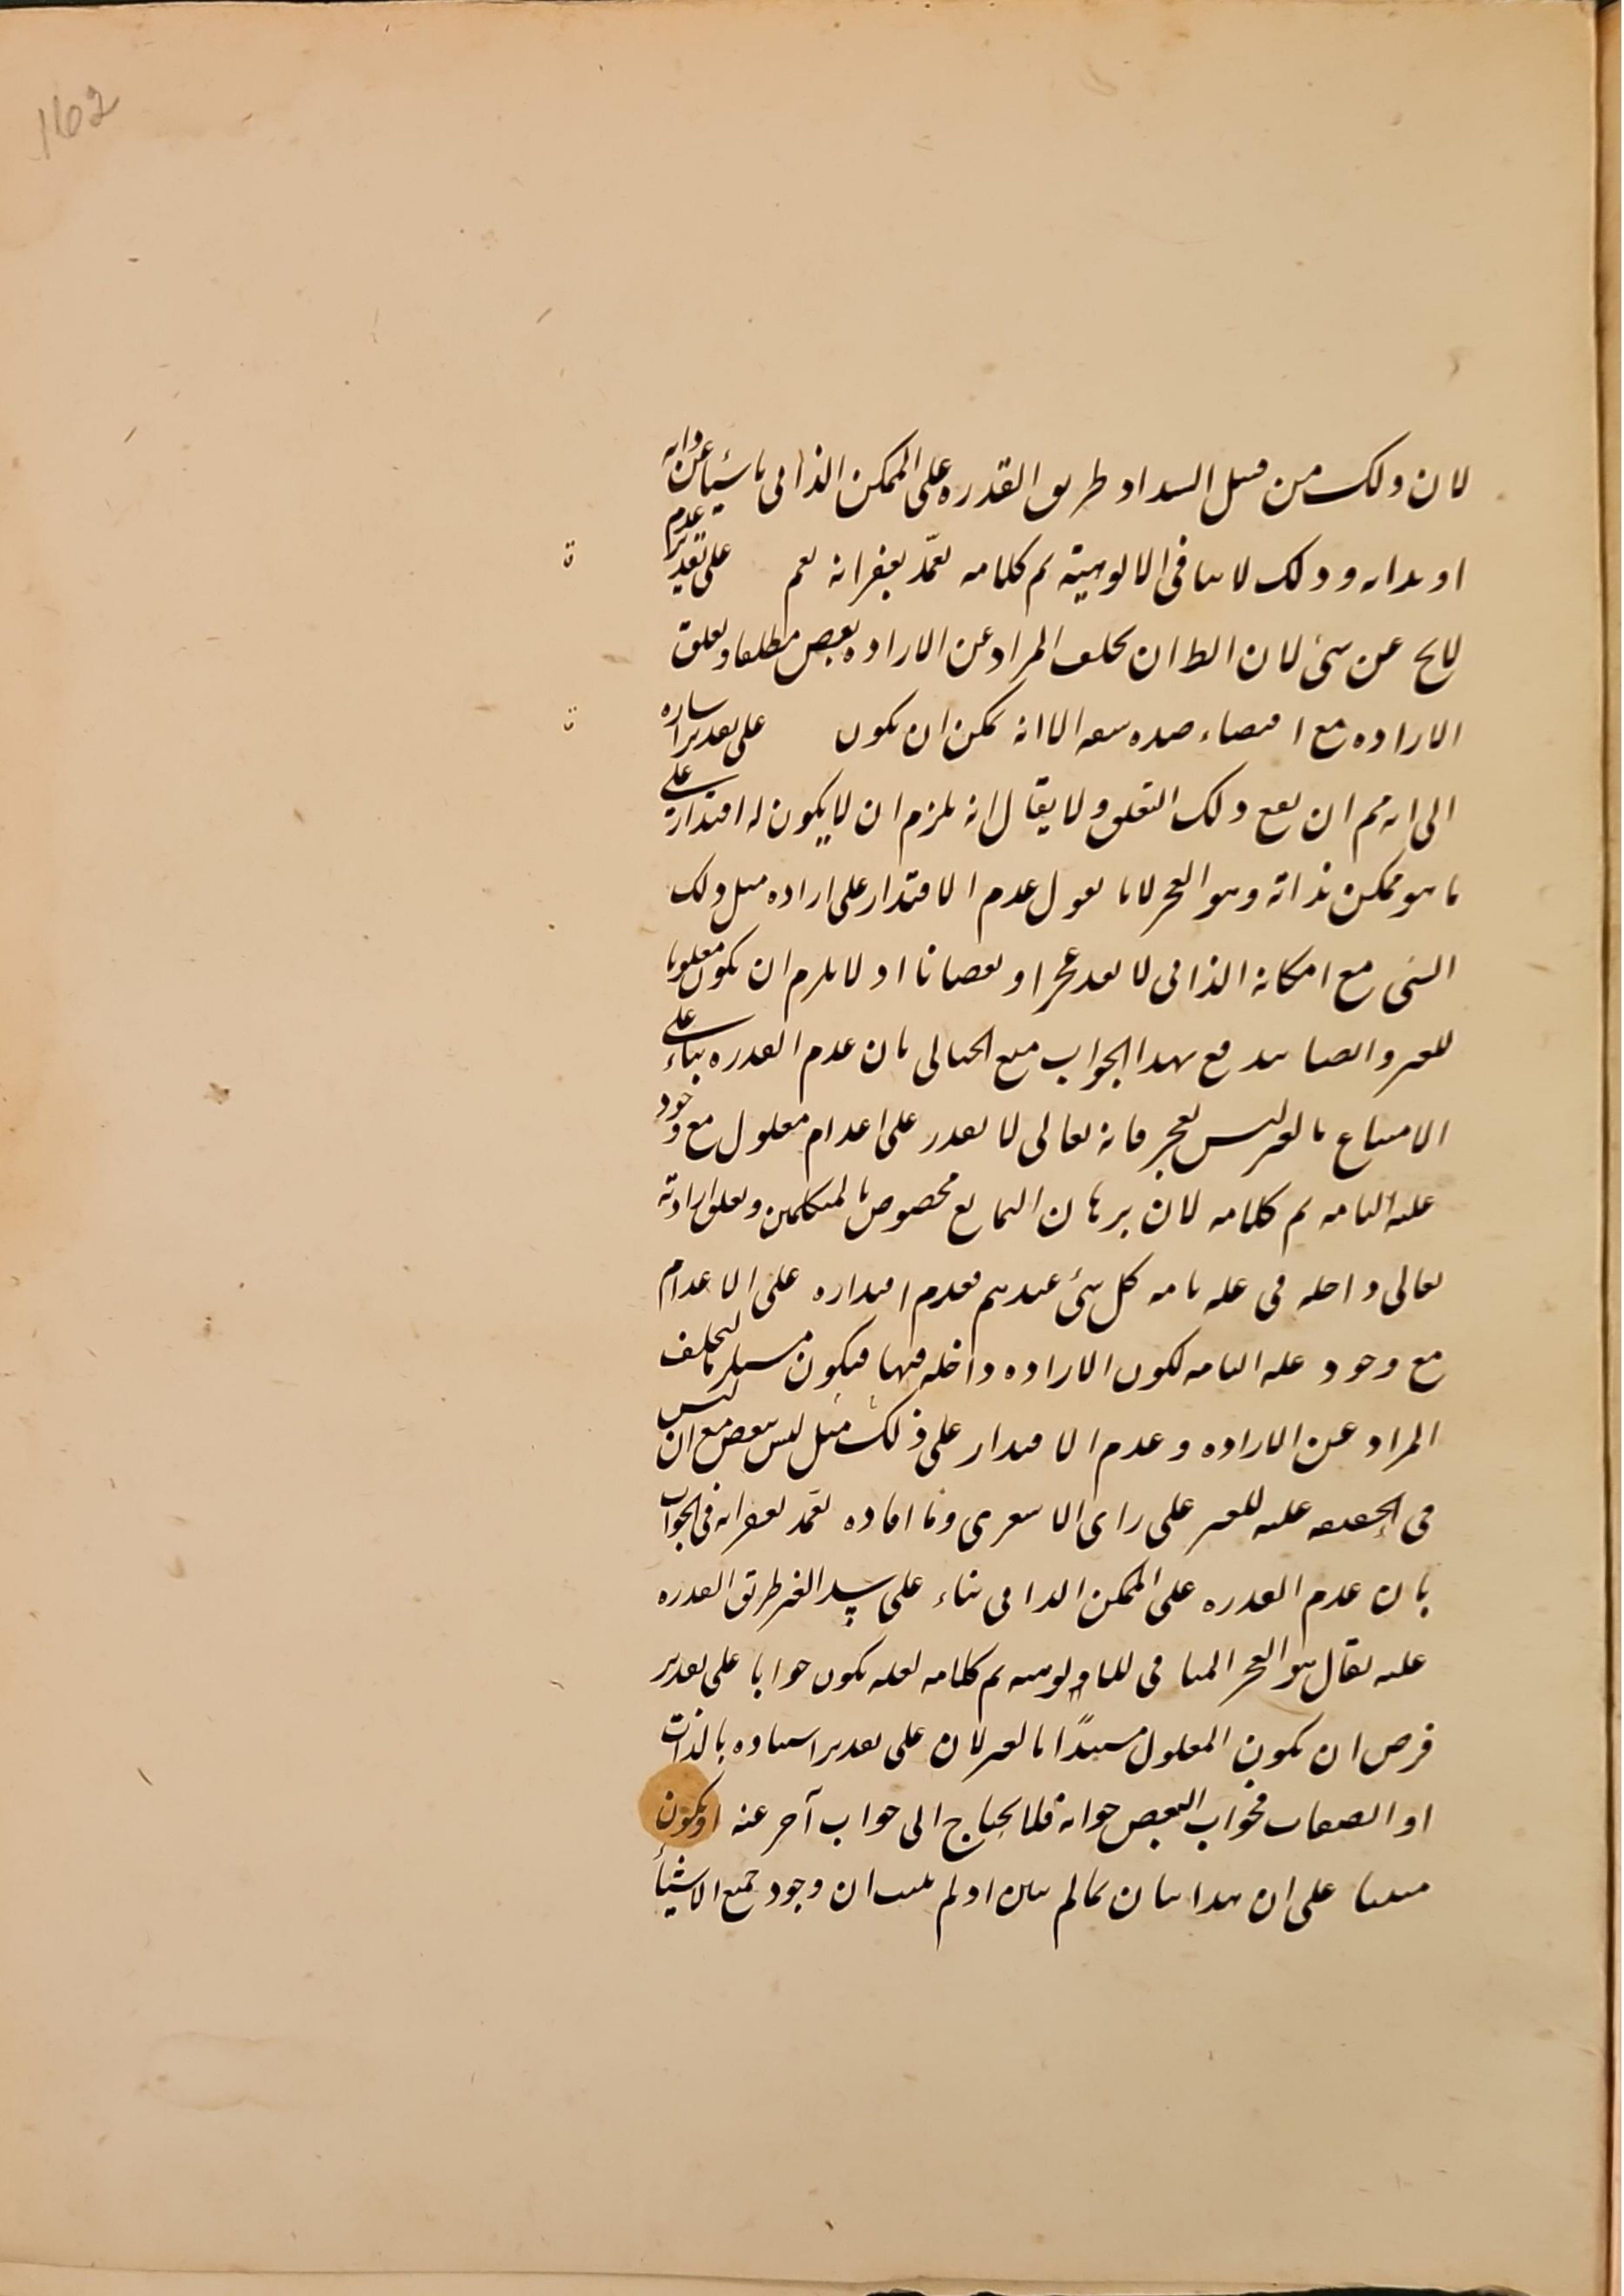 162
لان ذلك من قبيل انسداد طريق القدرة على الممكن الذاتي ناشيا عن ذاته
او بذاته وذلك لا ينافى الالوهية تم كلامه تغمّد بغفرانه نعم على تقدير عدم
لايخ عن شئ لان الظ ان تخلف المراد عن الارادة نقص مطلقا وتعلق
الارادة مع اقتضاء ضده سفه الا انه يمكن ان يكون على تقدير اشارة
الى انه مم ان يقع ذلك التعلق ولا يقال انه يلزم ان لا يكون له اقتدار على
ما هو ممكن بذاته وهو العجز لانا نقول عدم الاقتدار على ارادة مثل ذلك
الشئ مع امكانه الذاتى لا يعد عجزا ونقصانا اذ لا يلزم ان يكون مغلوبا
للغير وايضا يندفع بهذا الجواب منع الخيالى بان عدم القدرة بناء على
الامتناع بالغير ليس بعجز فانه تعالى لا يقدر على اعدام معلول مع وجود
علته التامة تم كلامه لان برهان التمانع مخصوص بالمتكلمين وتعلق ارادته
تعالى داخلة فى علة تامة كل شئ عندهم فعدم اقتداره على الاعدام
مع وجود علته التامة لكون الارادة داخلة فيها فيكون مستلزما لتخلف
المراد عن الارادة وعدم الاقتدار على ذلك مثل ليس بنقص مع ان ليس
فى الحقيقة علية للغير على راى الاشعرى وما افاده تغمد بغفرانه فى الجواب
بان عدم القدرة على الممكن الذاتى بناء على سد الغير طريق القدرة
عليه يقال هو العجز المنافى للالوهية تم كلامه لعله يكون جوابا على تقدير
فرض ان يكون المعلول مستندًا بالغير لان على تقدير استناده بالذات
او الصفات فجواب النقض جوابه فلا يحتاج الى جواب آخر عنه او يكون
مبنيا على ان هذا بيان بما لم يبين اذ لم يثبت ان وجود جميع الاشيأ